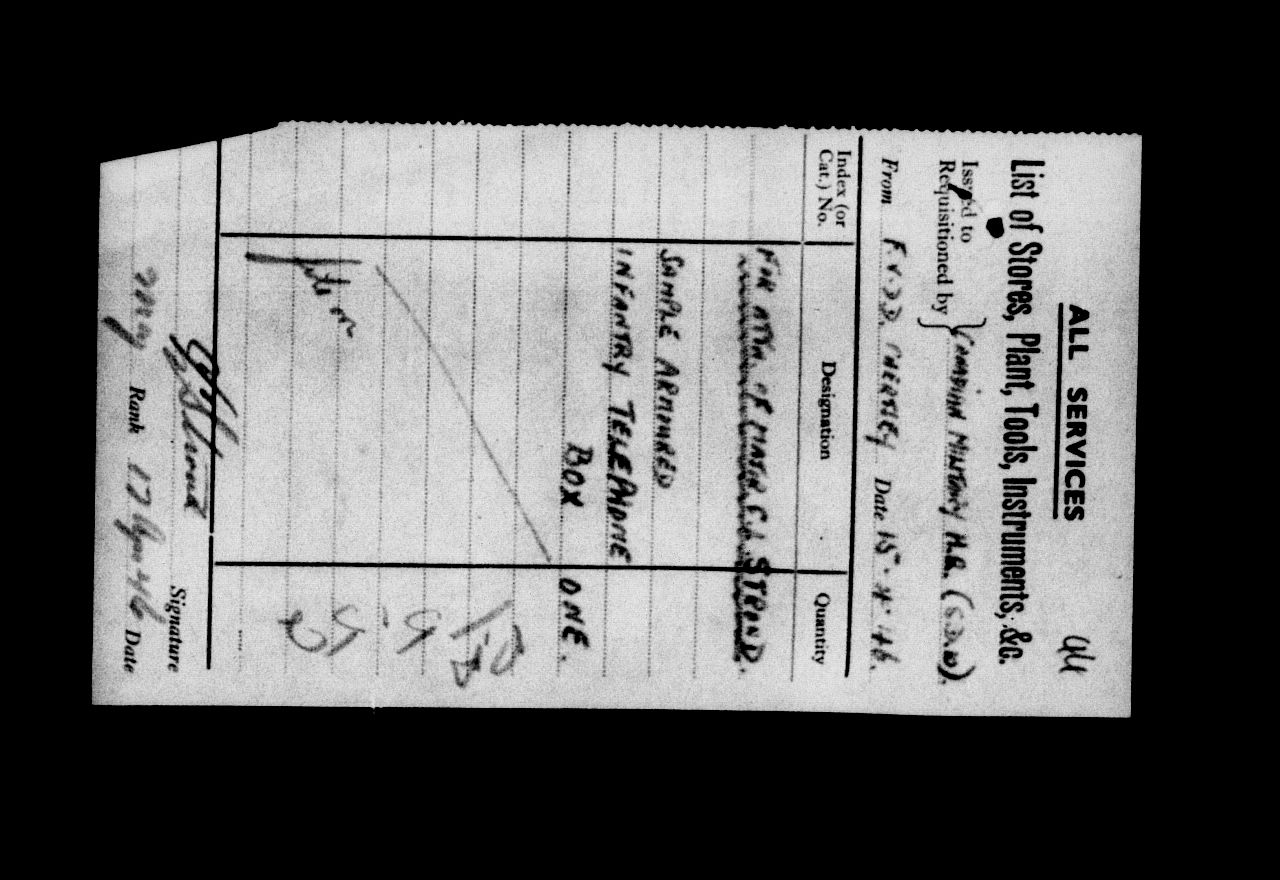 ALL SERVICES
44
List of Stores, Plant, Tools, Instruments, &c.
Issued to
Requisitioned by } CANADIAN MILITARY H.Q. (S.D.10).
From F.V.D.D. CHERTSEY Date 15.4.46.
Index (or Cat.) No. Designation Quantity
FOR ATTN. OF MAJOR C.J. STROND.
SAMPLE ARMOURED
INFANTRY TELEPHONE
BOX ONE.
Signature
Maj Rank 17 Apr 46 Date